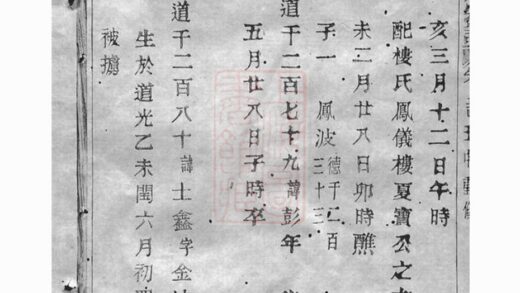 亥三月十二日午時
配樓氏鳳儀樓夏寶公之
未二月廿八日卯時醮
子一 鳳波德千二百三十三
道千二百七十九諱彭年
五月廿八日子時卒
道千二百八十諱士鑫字金
生於道光乙未閏六月初
被擄